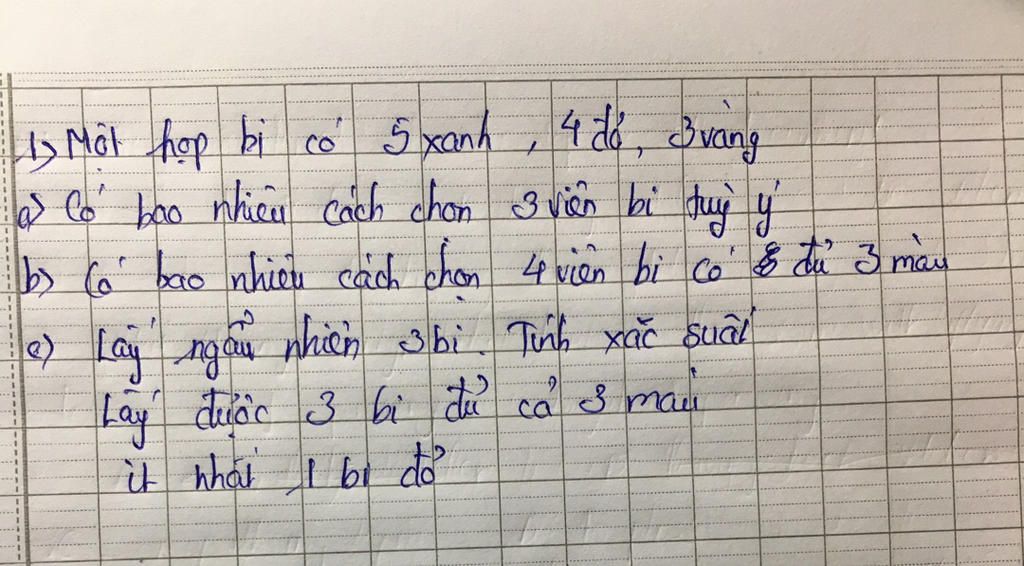 1) Một họp bi có 5 xanh, 4 đỏ, 3 vàng
a) Có bao nhiêu cách chọn 3 viên bi tuỳ ý
b) Có bao nhiêu cách chọn 4 viên bi có đủ 3 màu
c) Lấy ngẫu nhiên 3 bi. Tính xác suất
Lấy được 3 bi đủ cả 3 màu
ít nhất 1 bi đỏ